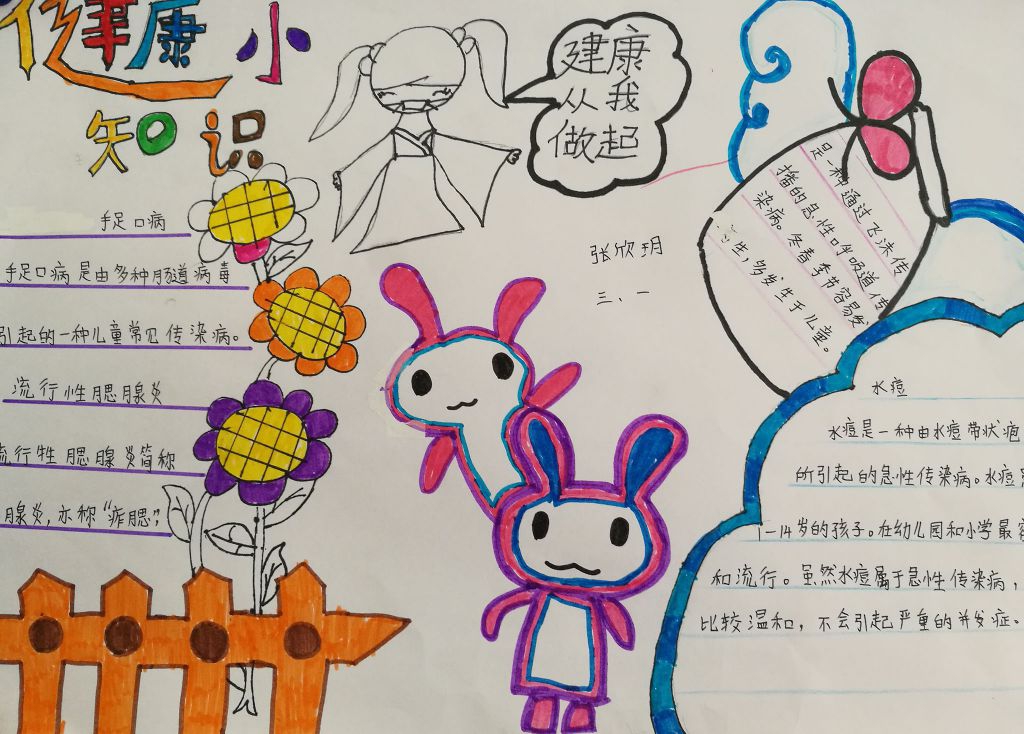 健康小
知识
建康
从我
做起
手足口病
手足口病是由多种肠道病毒
引起的一种儿童常见传染病。
流行性腮腺炎
流行性腮腺炎简称
腺炎，亦称“痄腮”；
张欣玥
三、一
是一种通过飞沫传
播的急性呼吸道传
染病。冬春季节容易发
生，多发生于儿童。
水痘
水痘是一种由水痘带状疱
所引起的急性传染病。水痘
1-14岁的孩子。在幼儿园和小学最容
和流行。虽然水痘属于急性传染病，
比较温和，不会引起严重的并发症。